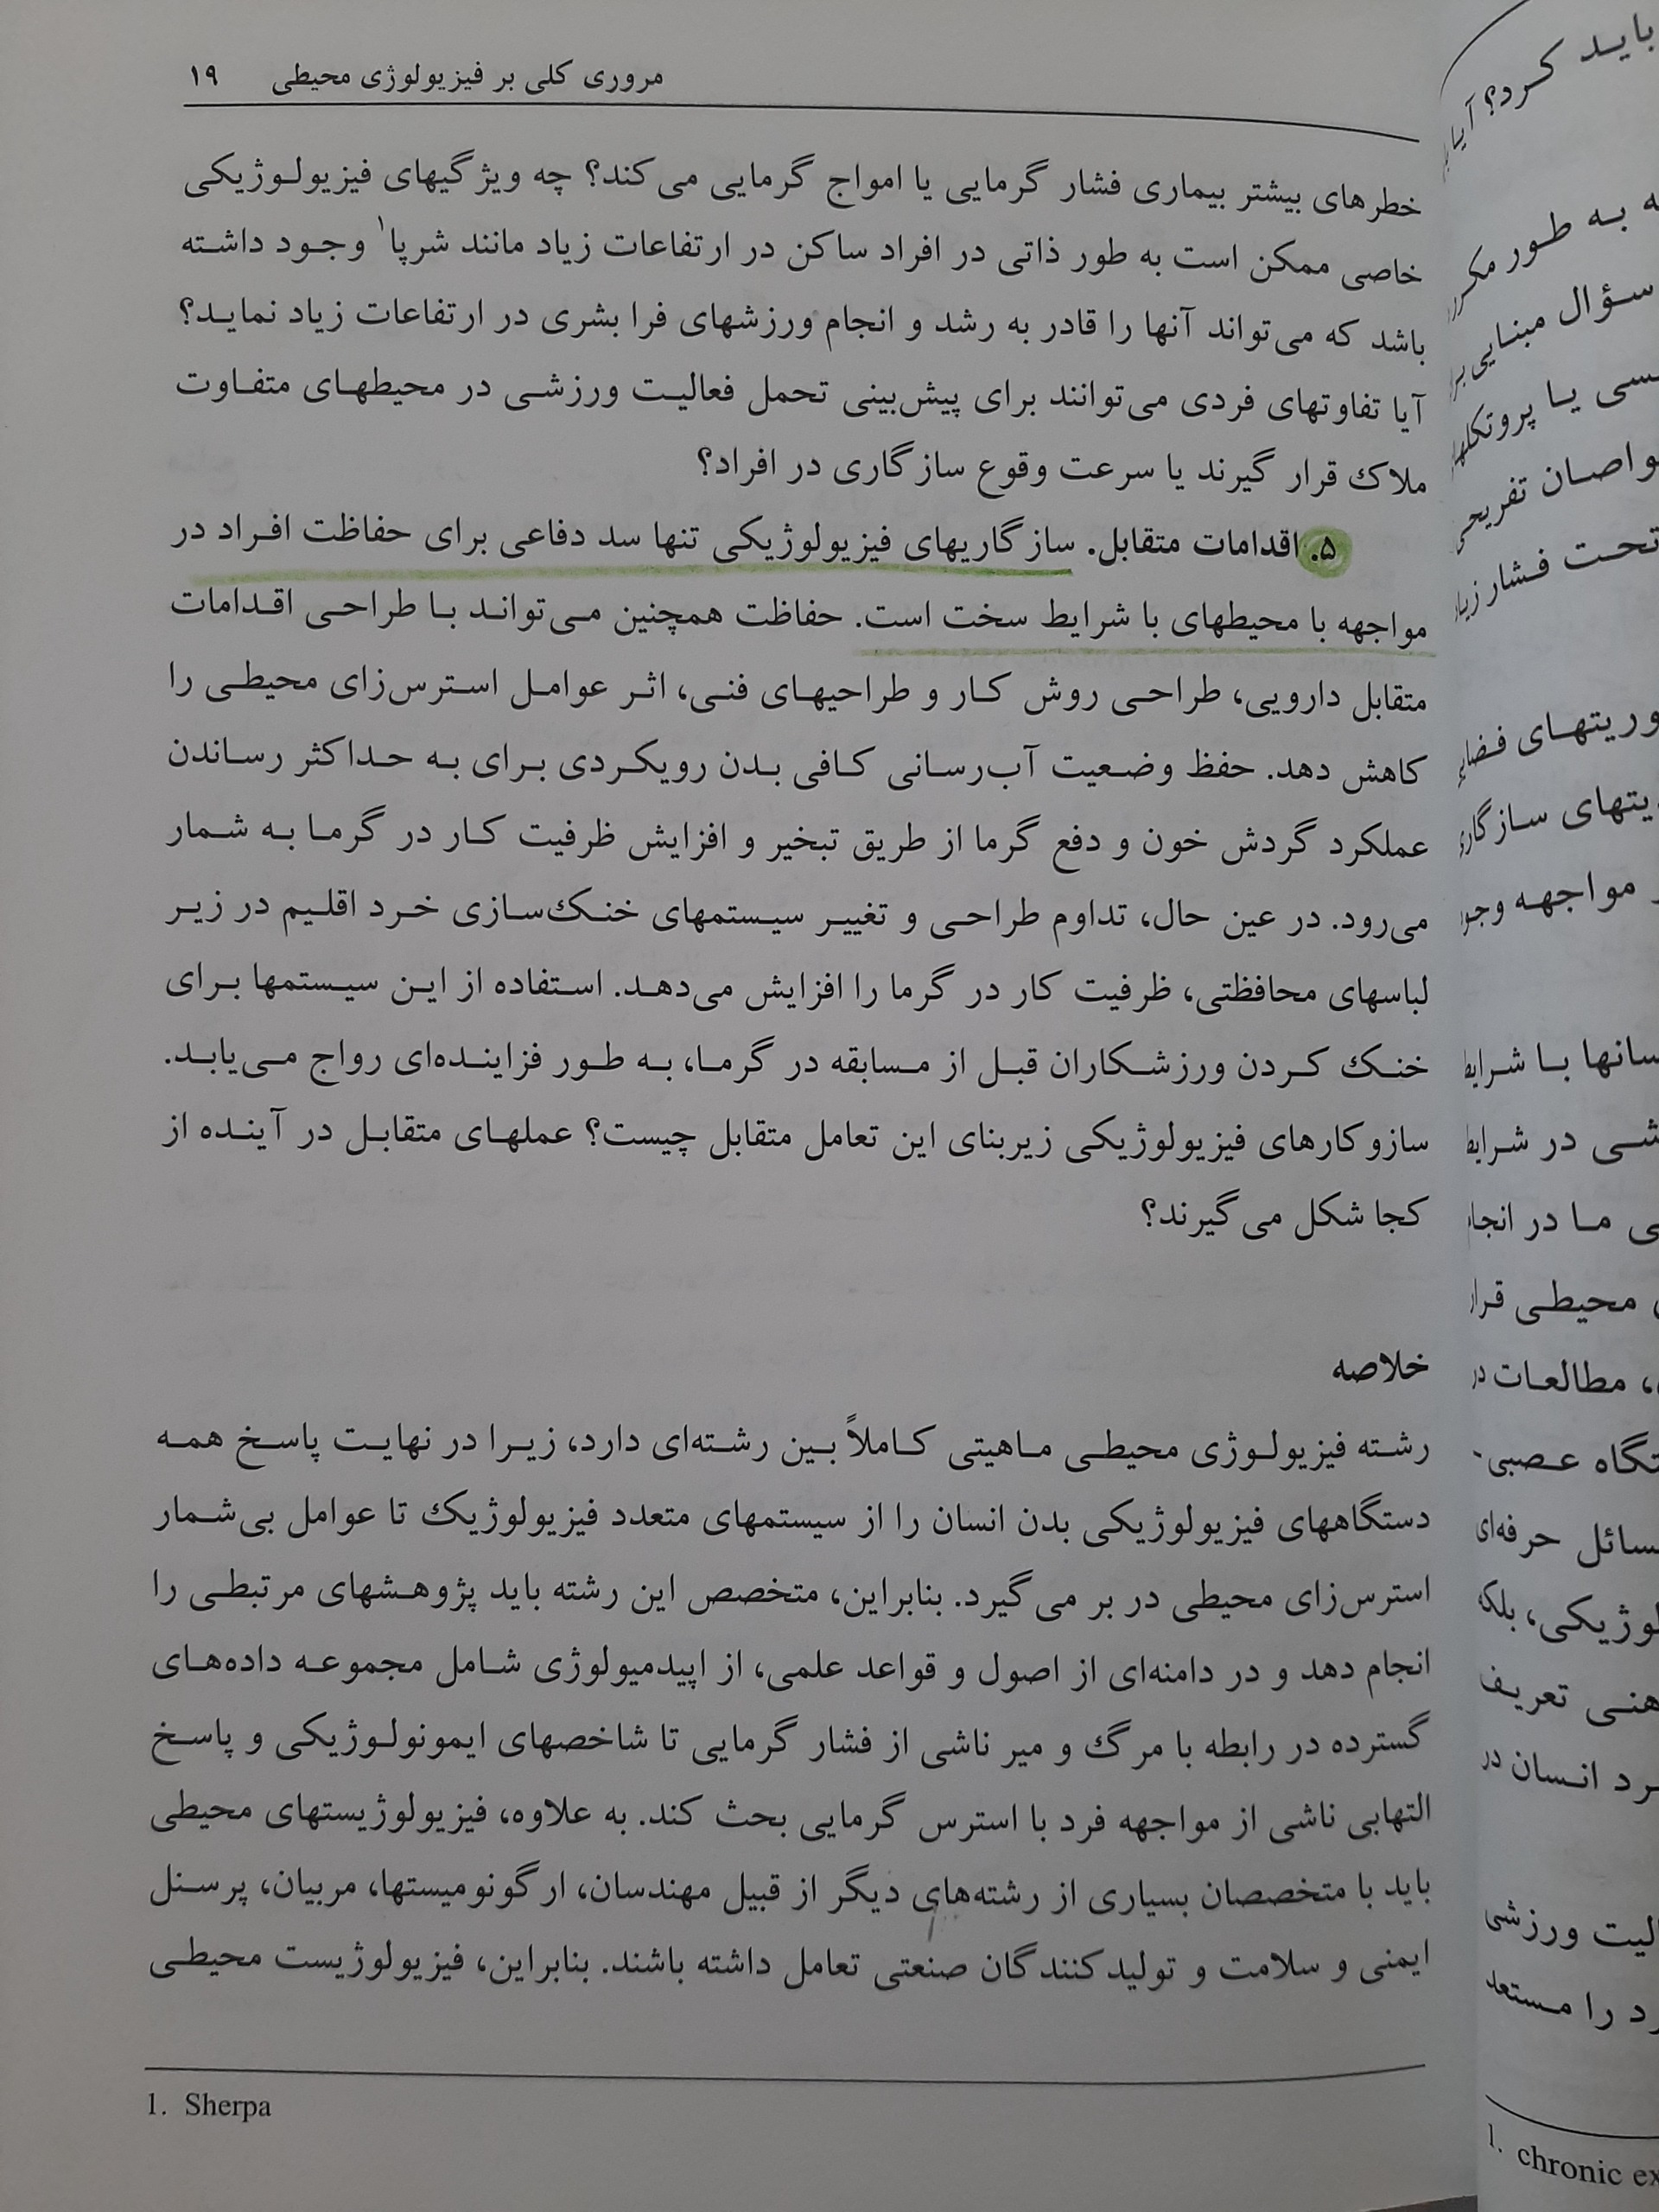 مروری کلی بر فیزیولوژی محیطی ۱۹
خطرهای بیشتر بیماری فشار گرمایی یا امواج گرمایی می‌کند؟ چه ویژگیهای فیزیولوژیکی
خاصی ممکن است به طور ذاتی در افراد ساکن در ارتفاعات زیاد مانند شرپا۱ وجود داشته
باشد که می‌تواند آنها را قادر به رشد و انجام ورزشهای فرا بشری در ارتفاعات زیاد نماید؟
آیا تفاوتهای فردی می‌توانند برای پیش‌بینی تحمل فعالیت ورزشی در محیطهای متفاوت
ملاک قرار گیرند یا سرعت وقوع سازگاری در افراد؟
۵. اقدامات متقابل. سازگاریهای فیزیولوژیکی تنها سد دفاعی برای حفاظت افراد در
مواجهه با محیطهای با شرایط سخت است. حفاظت همچنین می‌تواند با طراحی اقدامات
متقابل دارویی، طراحی روش کار و طراحیهای فنی، اثر عوامل استرس‌زای محیطی را
کاهش دهد. حفظ وضعیت آب‌رسانی کافی بدن رویکردی برای به حداکثر رساندن
عملکرد گردش خون و دفع گرما از طریق تبخیر و افزایش ظرفیت کار در گرما به شمار
می‌رود. در عین حال، تداوم طراحی و تغییر سیستمهای خنک‌سازی خرد اقلیم در زیر
لباسهای محافظتی، ظرفیت کار در گرما را افزایش می‌دهد. استفاده از این سیستمها برای
خنک کردن ورزشکاران قبل از مسابقه در گرما، به طور فزاینده‌ای رواج می‌یابد.
سازوکارهای فیزیولوژیکی زیربنای این تعامل متقابل چیست؟ عملهای متقابل در آینده از
کجا شکل می‌گیرند؟
خلاصه
رشته فیزیولوژی محیطی ماهیتی کاملاً بین رشته‌ای دارد، زیرا در نهایت پاسخ همه
دستگاههای فیزیولوژیکی بدن انسان را از سیستمهای متعدد فیزیولوژیک تا عوامل بی‌شمار
استرس‌زای محیطی در بر می‌گیرد. بنابراین، متخصص این رشته باید پژوهشهای مرتبطی را
انجام دهد و در دامنه‌ای از اصول و قواعد علمی، از اپیدمیولوژی شامل مجموعه داده‌های
گسترده در رابطه با مرگ و میر ناشی از فشار گرمایی تا شاخصهای ایمونولوژیکی و پاسخ
التهابی ناشی از مواجهه فرد با استرس گرمایی بحث کند. به علاوه، فیزیولوژیستهای محیطی
باید با متخصصان بسیاری از رشته‌های دیگر از قبیل مهندسان، ارگونومیستها، مربیان، پرسنل
ایمنی و سلامت و تولیدکنندگان صنعتی تعامل داشته باشند. بنابراین، فیزیولوژیست محیطی
1. Sherpa
باید کرد؟ آیا
به طور مکرر
سؤال مبنایی
یا پروتکلها
تفریحی
تحت فشار زیاد
سازگاری
مواجهه
با شرایط
در شرایط
ما در انجا
محیطی قرار
، مطالعات در
عصبی-
حرفه‌ای
بلکه
تعریف
انسان در
ورزشی
را مستعد
1. chronic ex